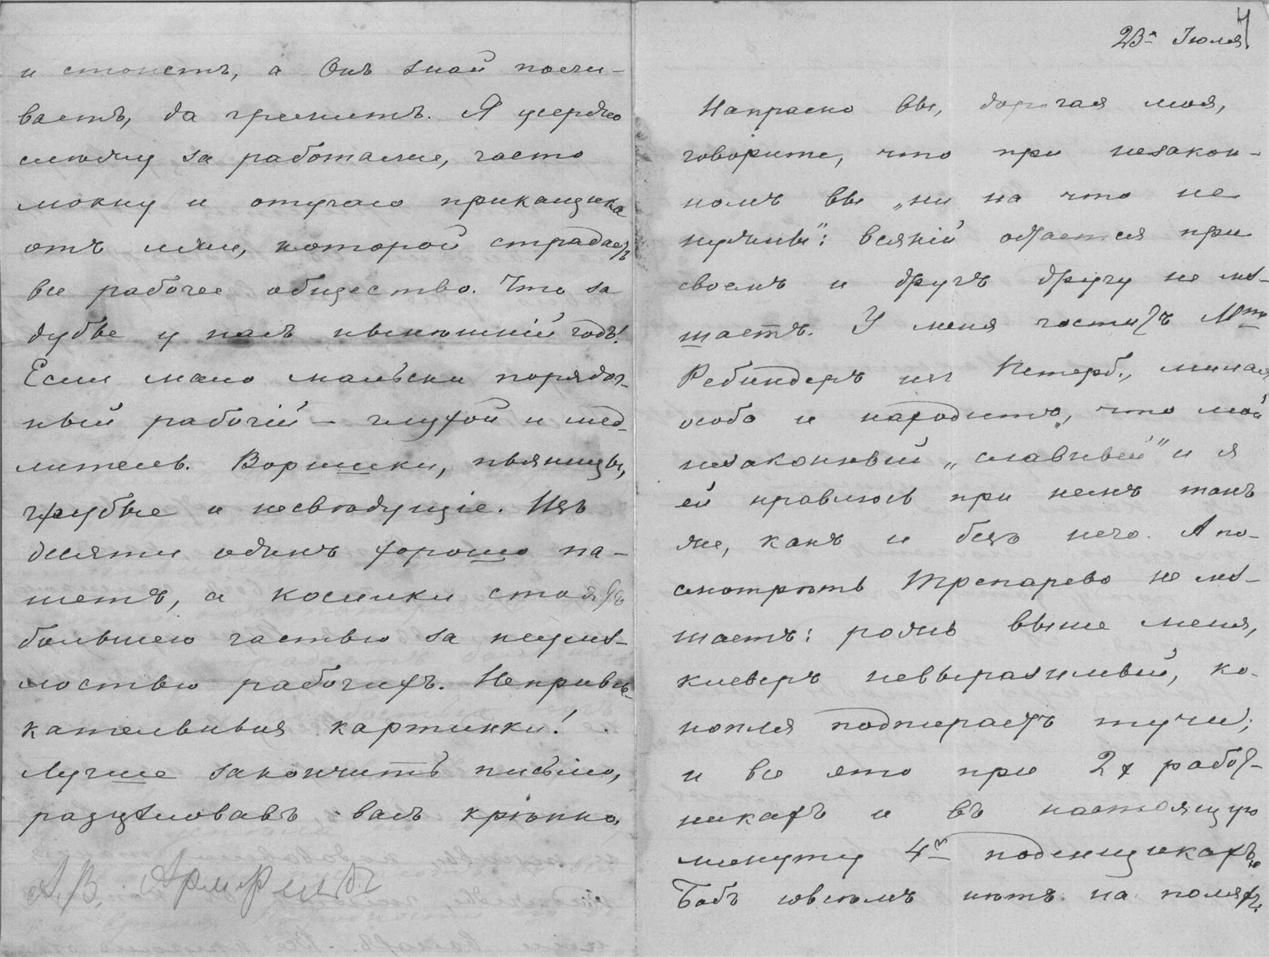 и стоитъ, а Онъ знай поли-
ваетъ, да гремитъ. Я усердно
слежу за работами, часто
мокну и отучаю прикащика
отъ лени, которой страдаетъ
все рабочее общество. Что за
дубье у насъ нынешнiй годъ!
Если мало мальски порядоч-
ный рабочiй — глухой и мед-
литель. Воришки, пьяницы,
грубые и несведущiе. Изъ
десяти одинъ хорошо па-
шетъ, а косилки стоятъ
большею частью за неуме-
лостью рабочихъ. Непривле-
кательныя картинки!
Лучше закончить письмо,
разцѣловавъ васъ крѣпко.
А. В.
4
23го Июля
Напрасно Вы, дорогая моя,
говорите, что при незакон-
номъ Вы „ни на что не
нужны": всякiй остается при
своемъ и другъ другу не мѣ-
шаетъ. У меня гоститъ Mme
Ребиндеръ изъ Петерб., милая
особа и находитъ, что мой
незаконный „славный" и я
ей нравлюсь при немъ такъ
же, какъ и безъ него. А по-
смотрѣть Трепарево не мѣ-
шаетъ: рожь выше меня,
клеверъ невыразимый, ко-
нопля подпираетъ тучи;
и все это при 2х работ-
никахъ и въ настоящую
минуту 4хъ поденщикахъ.
Бабъ совсѣмъ нѣтъ на поляхъ